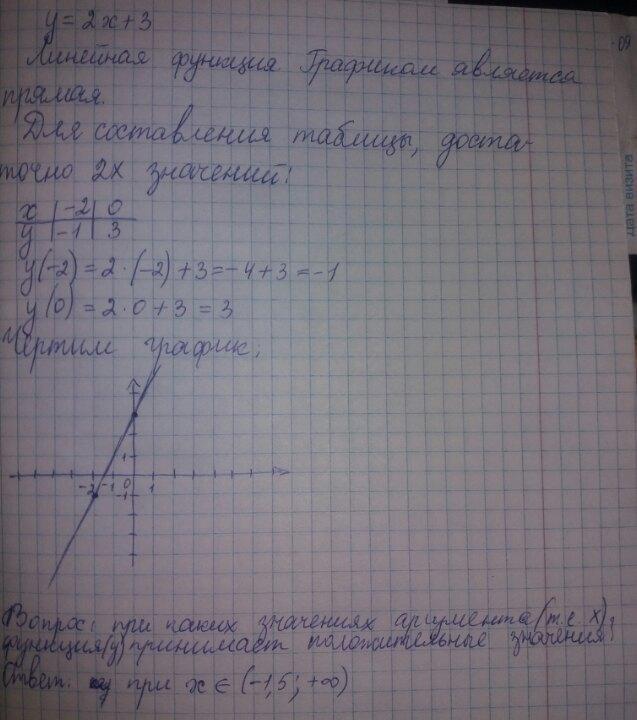 y = 2x + 3
Линейная функция Графиком является
прямая.
Для составления таблицы, доста-
точно 2х значений:
x | -2 | 0
y | -1 | 3
y(-2) = 2 · (-2) + 3 = -4 + 3 = -1
y(0) = 2 · 0 + 3 = 3
Чертим график:
1
-2 -1 0 1
-1
Вопрос: при каких значениях аргумента (т.е. x),
функция(y) принимает положительные значения?
Ответ: при x ∈ (-1,5; +∞)
дата визита
09